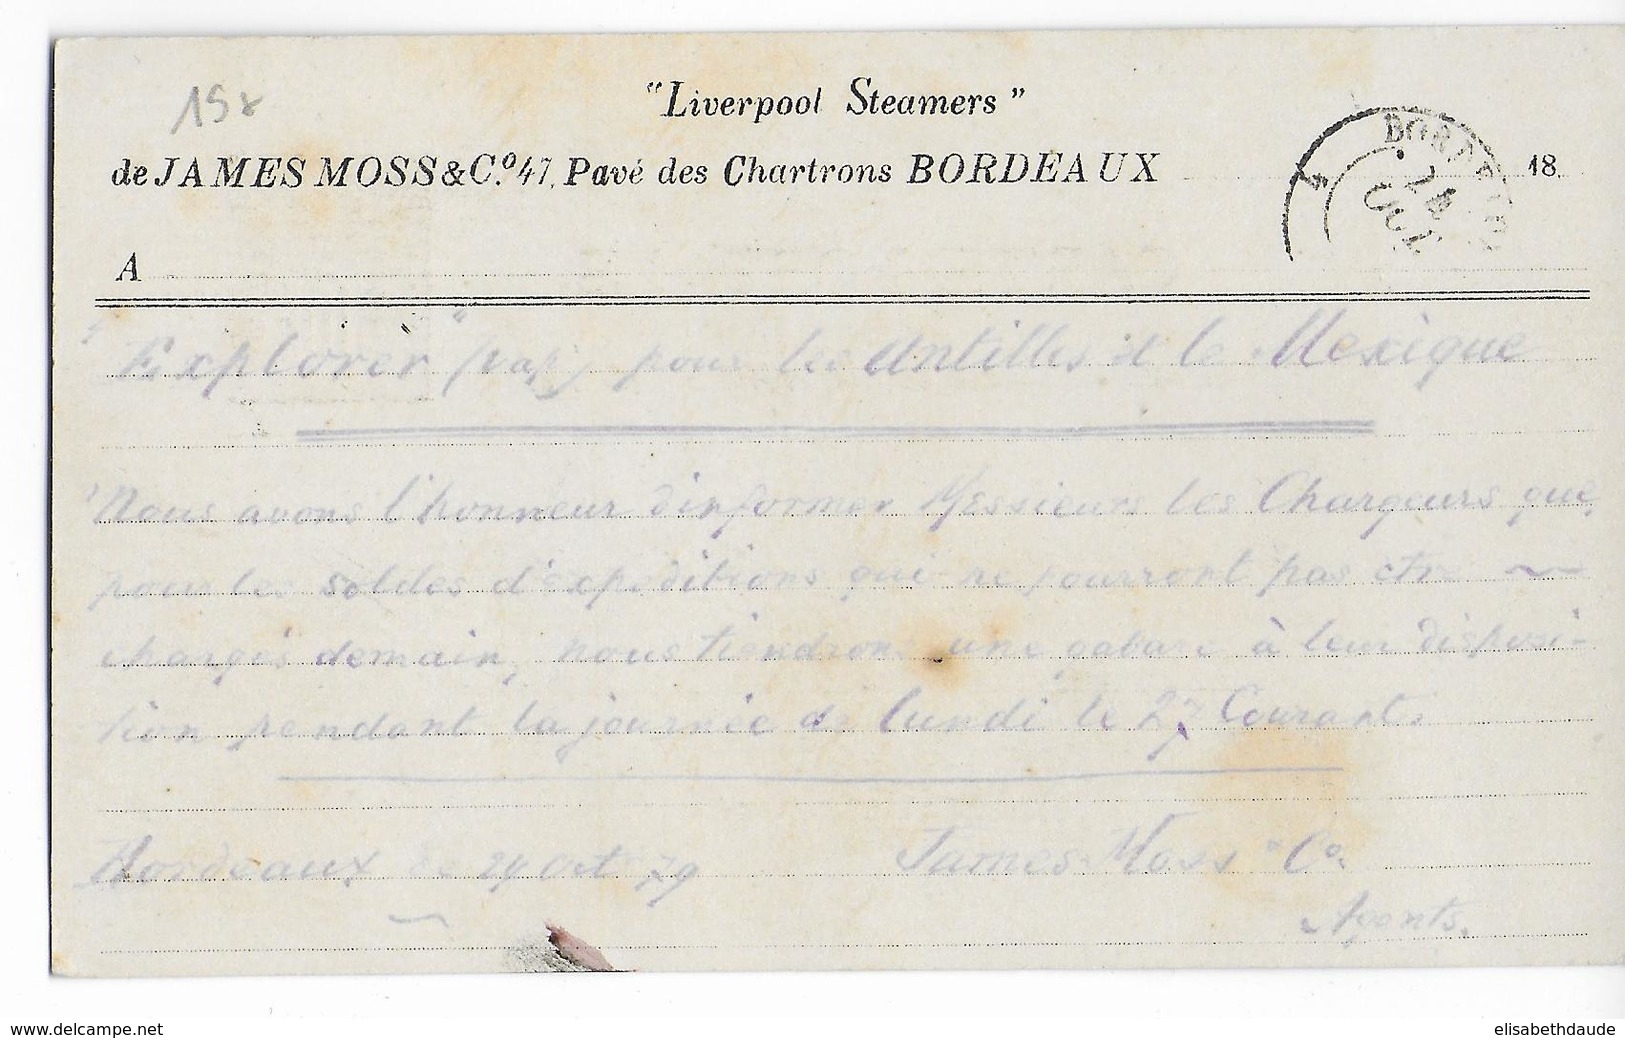 15x
"Liverpool Steamers"
de JAMES MOSS & C.º 47, Pavé des Chartrons BORDEAUX 18
BORDEAUX
4
24
OCT
A
"Explorer" (vap) pour les Antilles et le Mexique
Nous avons l'honneur d'informer Messieurs les Chargeurs que
pour les soldes d'expeditions qui ne pourront pas etre
chargés demain, nous tiendrons une gabare à leur disposi-
tion pendant la journée de lundi le 27 Courant.
Bordeaux le 24 Oct 79
James Moss & Co.
Agents.
www.delcampe.net
elisabethdaude